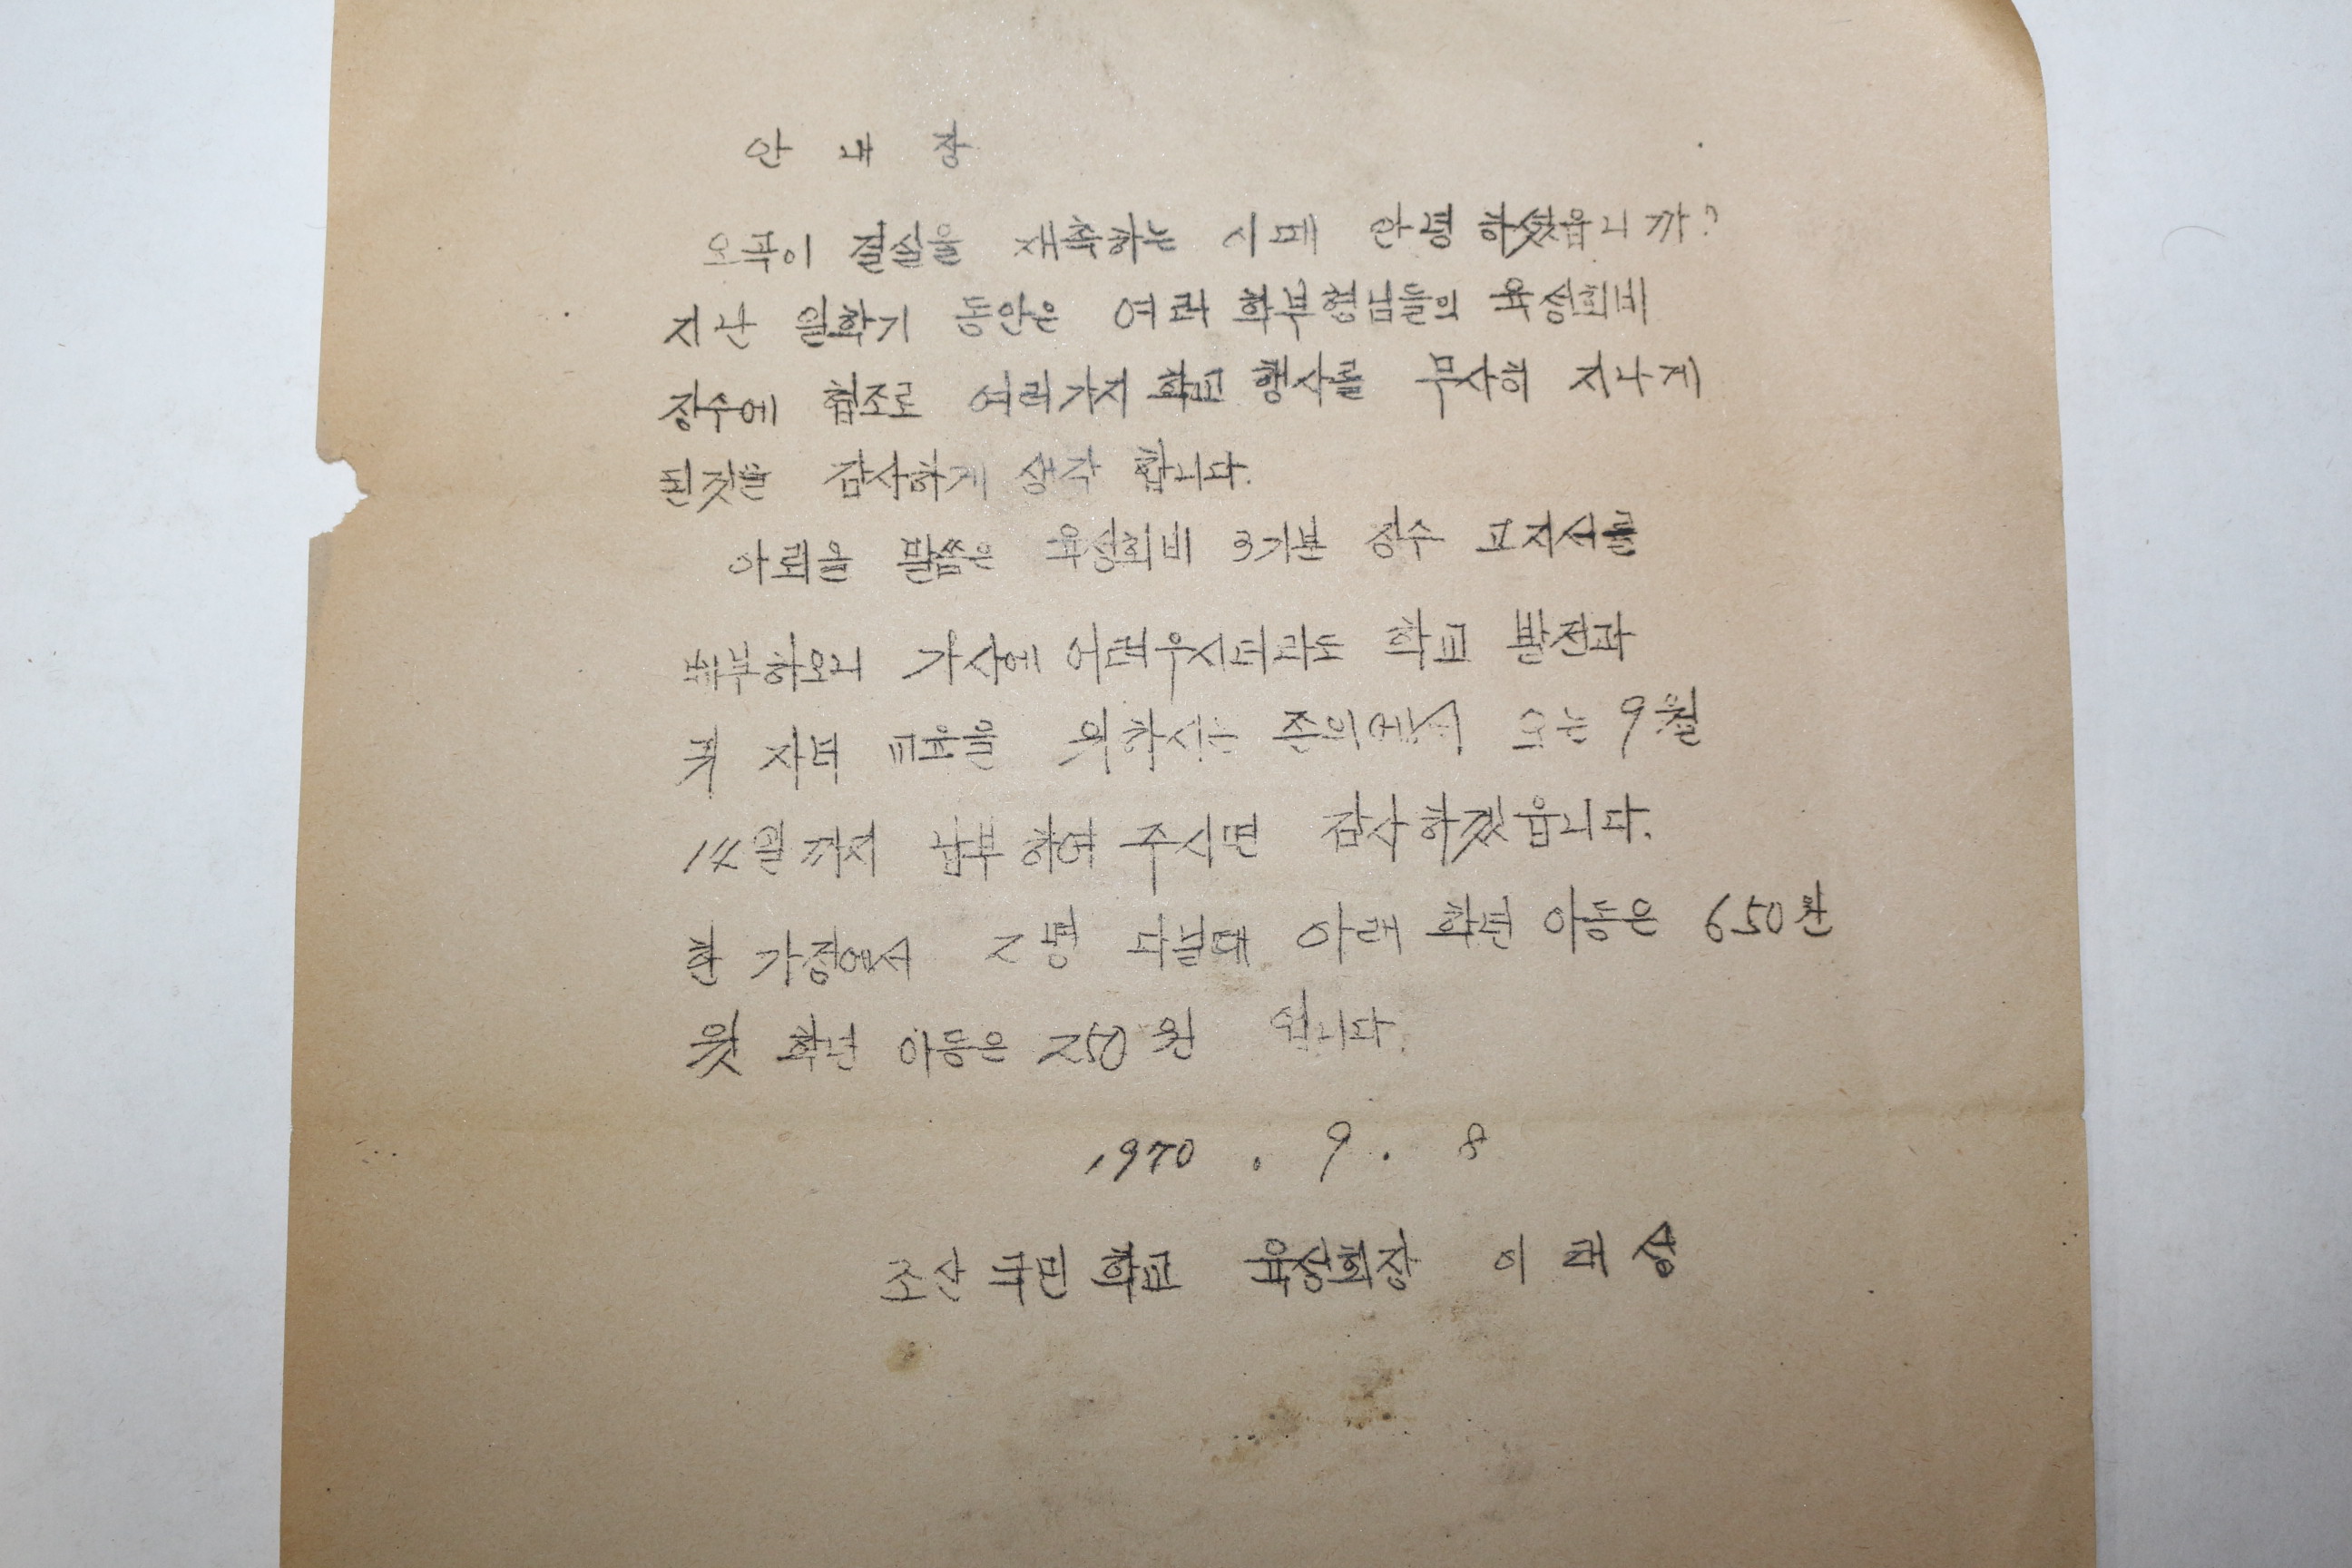 안 내 장
오곡이 결실을 재촉하는 시떼 안녕 하셨읍니까?
지난 일학기 동안은 여러 학부형님들의 육성회비
징수에 협조로 여러가지 학교 행사를 무사히 지나게
된것을 감사하게 생각 합니다.
아뢰올 말씀은 육성회비 3기분 징수 고지서를
배부하오니 가사에 어려우시더라도 학교 발전과
귀 자녀 교육을 위하시는 존의에서 오는 9월
일까지 납부 하여 주시면 감사하겠읍니다.
한 가정에서 2명 다닐때 아래 학년 아동은 650원
윗 학년 아동은 250원 입니다.
1970 . 9 . 8
조산 국민 학교 육성회장 이 태 성